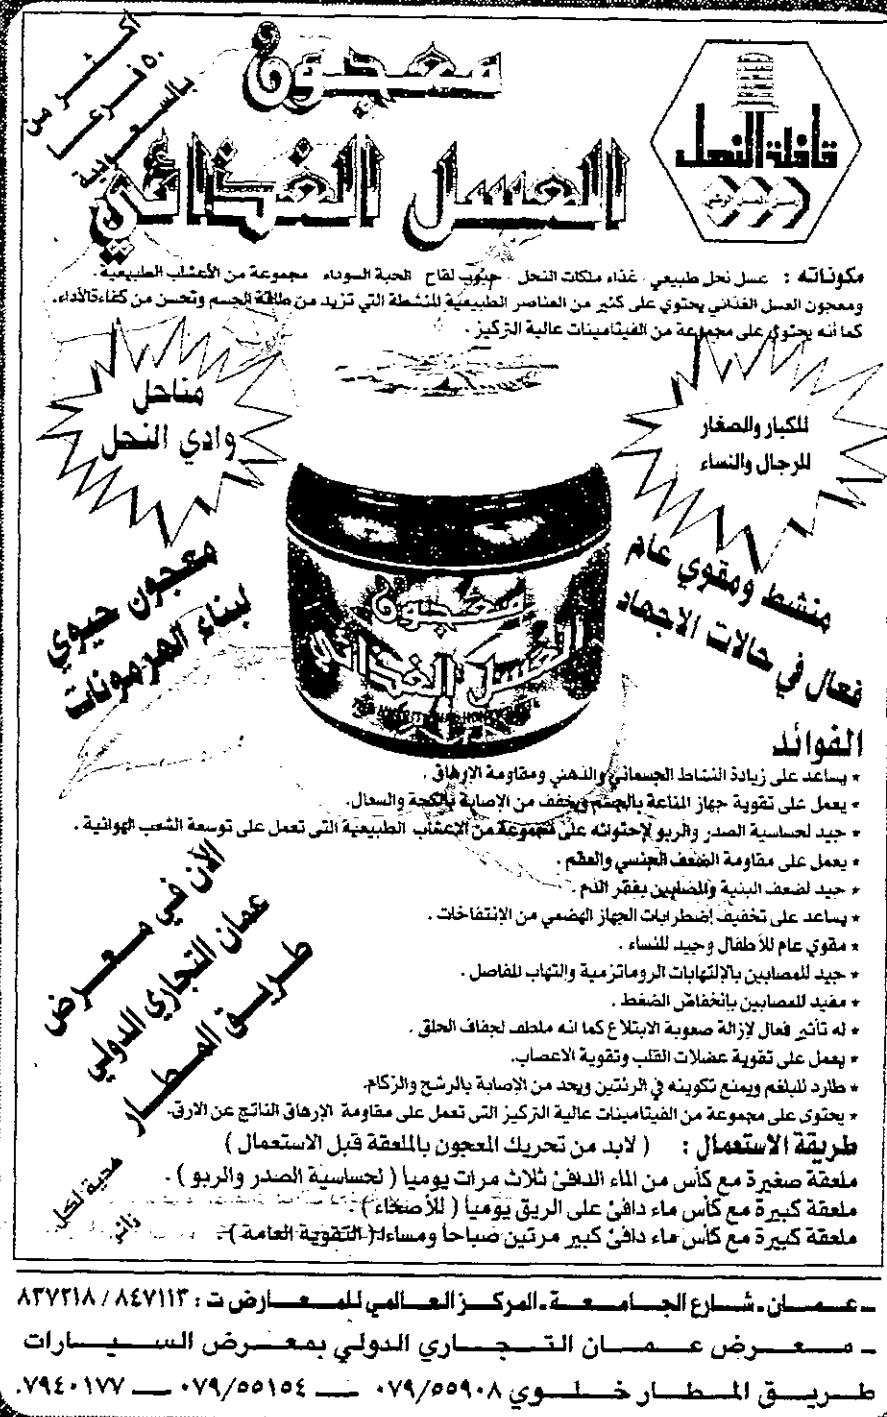 أكثر من
٥٠ فرعا
بالسعودية
معجون
العسل الغذائي
قافلة النحل
مكوناته : عسل نحل طبيعي . غذاء ملكات النحل . حبوب لقاح الحبة السوداء مجموعة من الأعشاب الطبيعية .
ومعجون العسل الغذائي يحتوي على كثير من العناصر الطبيعية المنشطة التي تزيد من طاقة الجسم وتحسن من كفاءة الأداء.
كما أنه يحتوي على مجموعة من الفيتامينات عالية التركيز .
مناحل
وادي النحل
للكبار والصغار
للرجال والنساء
معجون حيوي
لبناء الهرمونات
منشط ومقوي عام
فعال في حالات الاجهاد
معجون
العسل الغذائي
الفوائد
* يساعد على زيادة النشاط الجسماني والذهني ومقاومة الإرهاق .
* يعمل على تقوية جهاز المناعة بالجسم ويخفف من الإصابة بالكحة والسعال.
* جيد لحساسية الصدر والربو لإحتوائه على مجموعة من الاعشاب الطبيعية التى تعمل على توسعة الشعب الهوائية .
* يعمل على مقاومة الضعف الجنسي والعقم .
* جيد لضعف البنية والمصابين بفقر الدم .
* يساعد على تخفيف إضطرابات الجهاز الهضمي من الإنتفاخات .
* مقوي عام للأطفال وجيد للنساء .
* جيد للمصابين بالإلتهابات الروماتزمية والتهاب المفاصل .
* مفيد للمصابين بإنخفاض الضغط .
* له تأثير فعال لإزالة صعوبة الابتلاع كما انه ملطف لجفاف الحلق .
* يعمل على تقوية عضلات القلب وتقوية الاعصاب.
* طارد للبلغم ويمنع تكوينه في الرئتين ويحد من الإصابة بالرشح والزكام.
* يحتوى على مجموعة من الفيتامينات عالية التركيز التى تعمل على مقاومة الإرهاق الناتج عن الارق.
الآن في معرض
عمان التجاري الدولي
طريق المطار
هدية لكل
زائر
طريقة الاستعمال : ( لابد من تحريك المعجون بالملعقة قبل الاستعمال )
ملعقة صغيرة مع كأس من الماء الدافئ ثلاث مرات يومياً ( لحساسية الصدر والربو ) .
ملعقة كبيرة مع كأس ماء دافئ على الريق يومياً ( للأصحاء ) .
ملعقة كبيرة مع كأس ماء دافئ كبير مرتين صباحاً ومساءً ( التقوية العامة ) .
ـ عمان ـ شارع الجامعة ـ المركز العالمي للمعارض ت : ٨٤٧١١٣ / ٨٢٧٢١٨
ـ معرض عمان التجاري الدولي بمعرض السيارات
طريق المطار خلوي ٠٧٩/٥٥٩٠٨ ــ ٠٧٩/٥٥١٥٤ ــ ٠٧٩٤٠١٧٧.